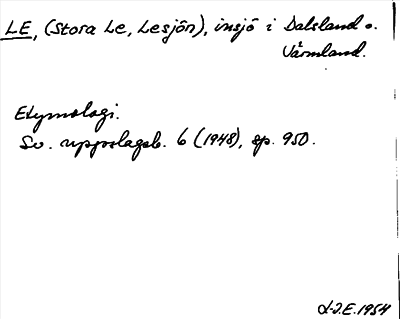 LE, (Stora Le, Lesjön), insjö i Dalsland o.
Värmland.
Etymologi.
Sv. uppslagsb. 6 (1948), sp. 950.
L-J.E. 1954